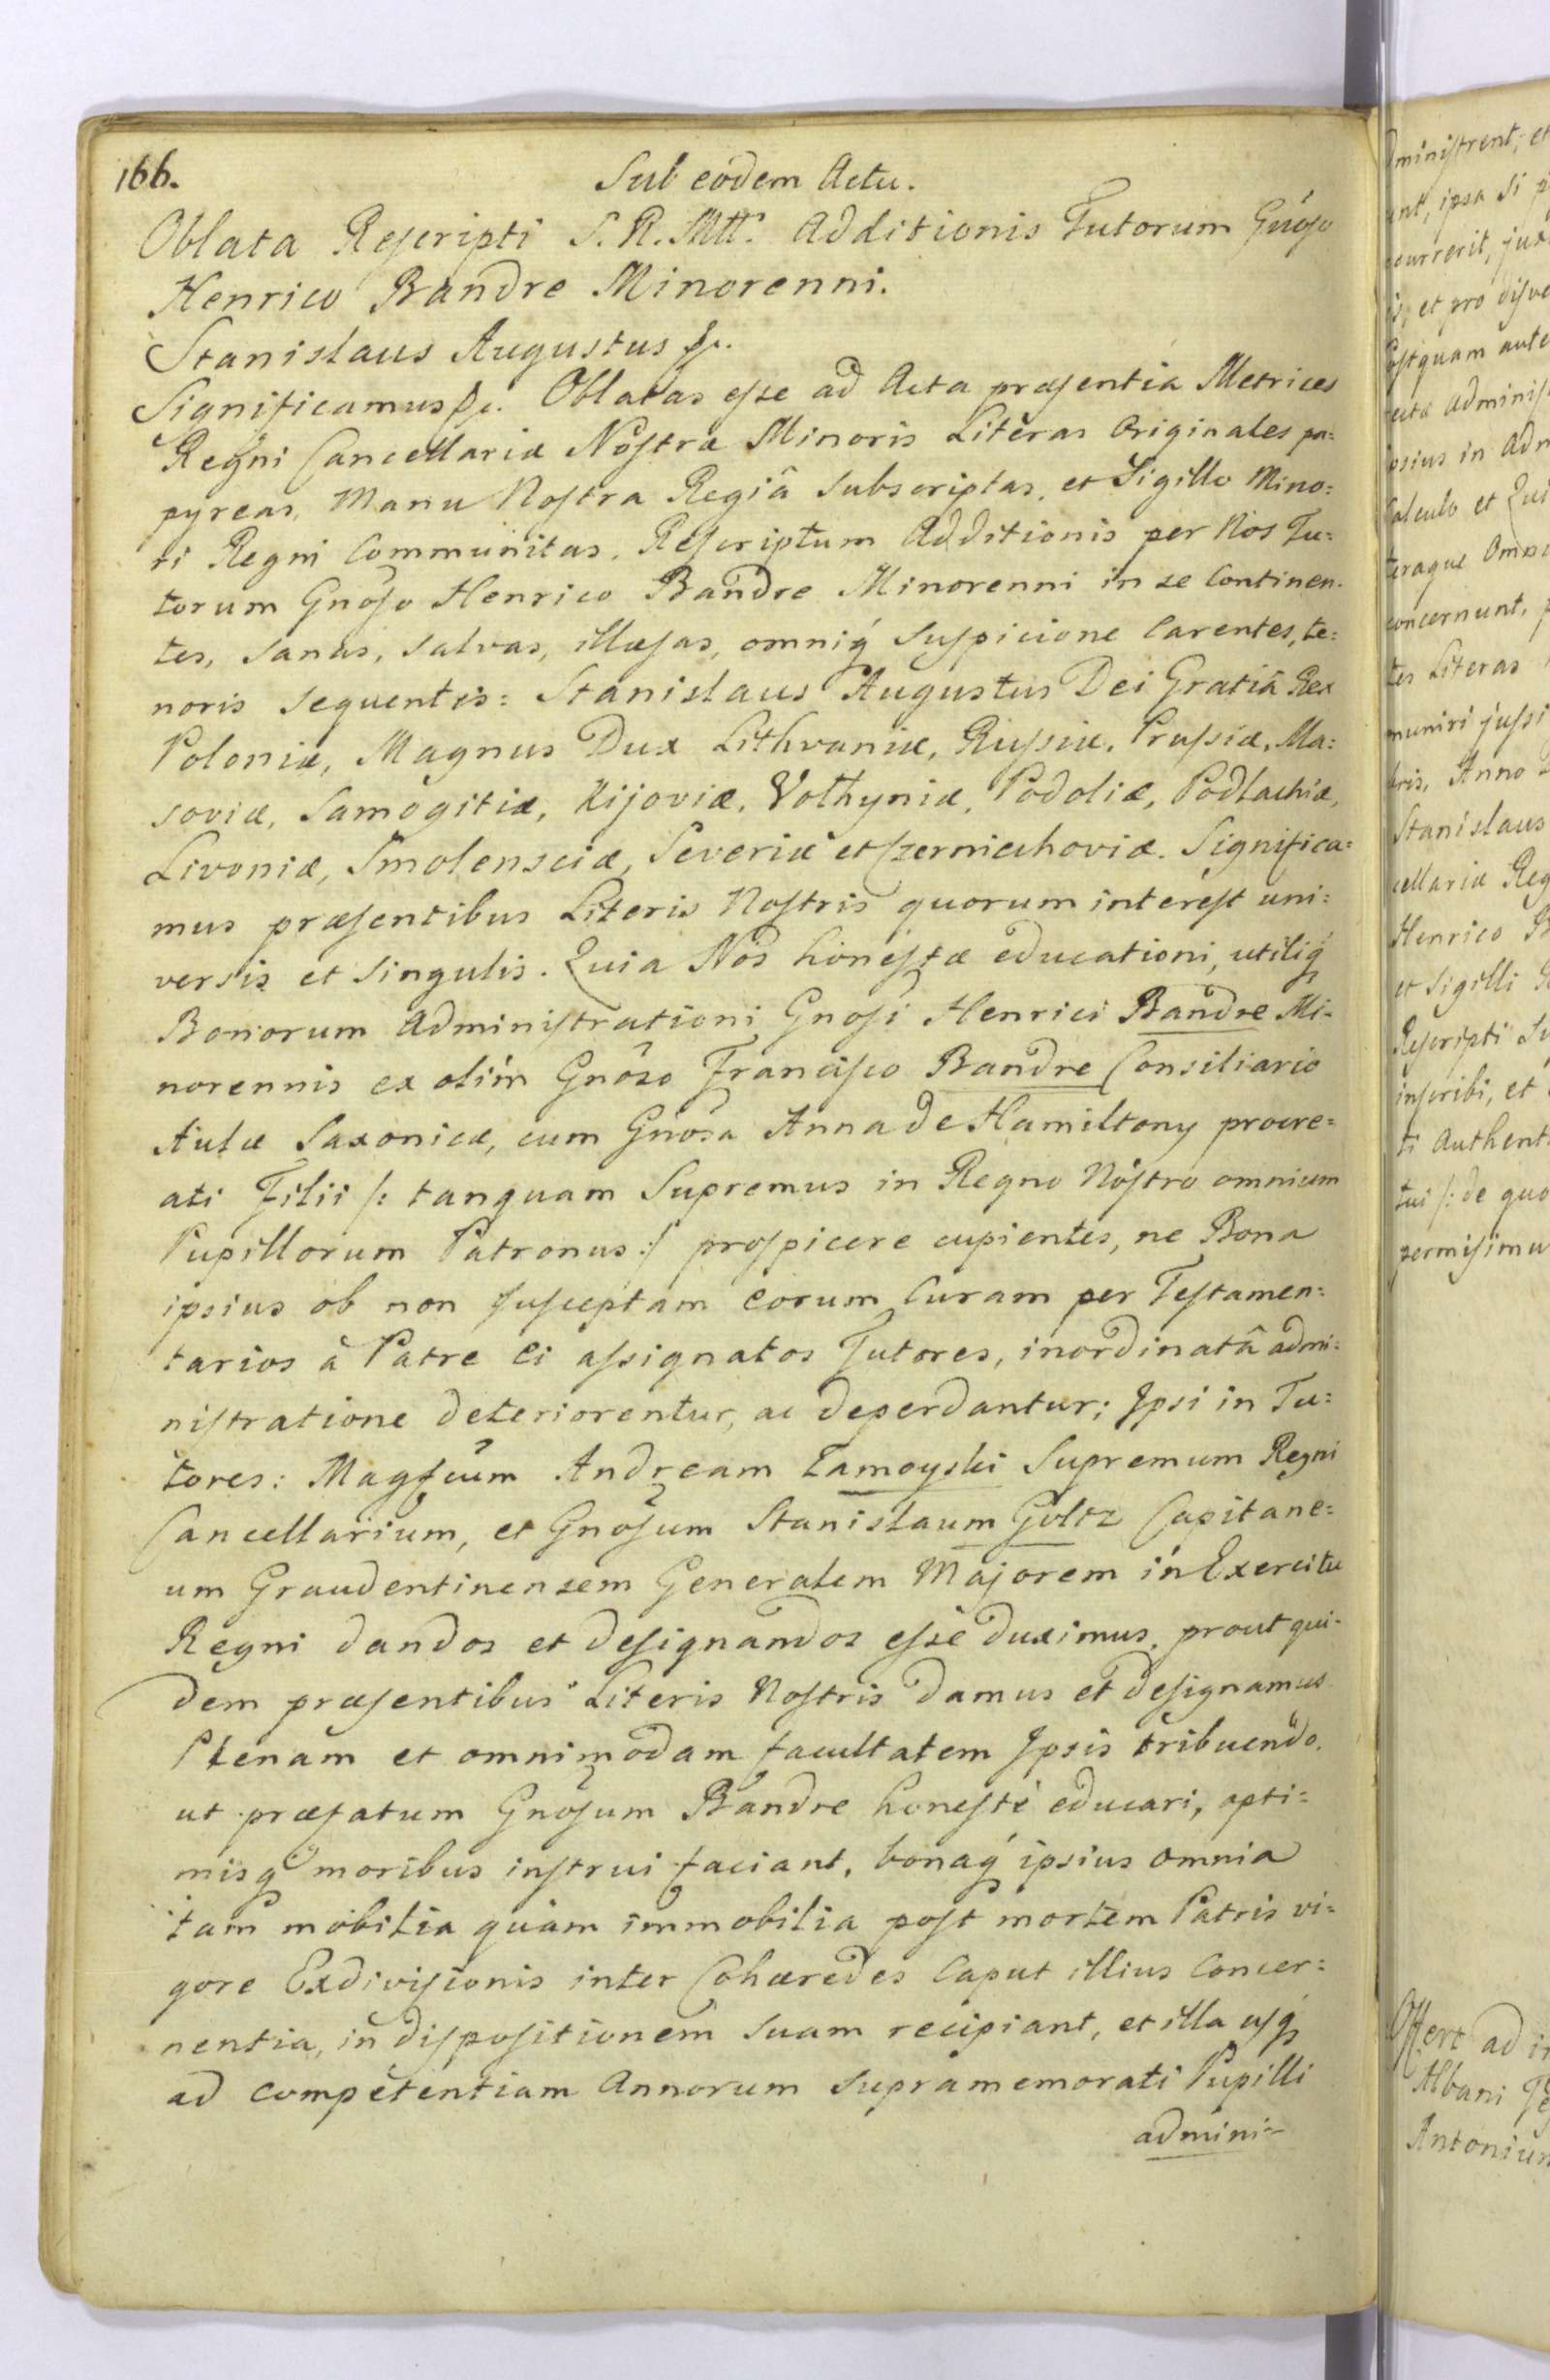 166.
Sub eodem Actu.
Oblata Rescripti S. R. Mtt. Additionis Tutorum Gnoso
Henrico Bandre Minorenni.
Stanislaus Augustus &c.
Significamus &c. Oblatas esse ad Acta præsentia Metrices
Regni Cancellariæ Nostræ Minoris Literas Originales pa=
pyreas, Manu Nostra Regiâ Subscriptas, et Sigillo Mino=
ri Regni Communitas, Rescriptum Additionis per Nos Tu=
torum Gnoso Henrico Bandre Minorenni in se Continen=
tes, sanas, salvas, illæsas, omniq́ Suspicione Carentes, te=
noris sequentis: Stanislaus Augustus Dei Gratiâ Rex
Poloniæ, Magnus Dux Lithvaniæ, Russiæ, Prussiæ, Ma=
soviæ, Samogitiæ, Kijoviæ, Volhyniæ, Podoliæ, Podlachiæ,
Livoniæ, Smolensciæ, Severiæ et Czerniechoviæ. Significa=
mus præsentibus Literis Nostris quorum interest uni=
versis et singulis. Quia Nos honestæ educationi, utiliq́
Bonorum Administrationi Gnosi Henrici Bandre Mi=
norennis ex olim Gnoso Francisco Bandre Consiliario
Aulæ Saxonicæ, cum Gnosa Anna de Hamiltony procre=
ati Filii /: tanquam Supremus in Regno Nostro omnium
Pupillorum Patronus :/ prospicere cupientes, ne Bona
ipsius ob non susceptam eorum Curam per Testamen=
tarios à Patre ei assignatos Tutores, inordinatâ admi=
nistratione deteriorentur, ac deperdantur; Ipsi in Tu=
tores: Magfcum Andream Zamoyski Supremum Regni
Cancellarium, et Gnosum Stanislaum Goltz Capitane=
um Graudentinensem Generalem Majorem in Exercitu
Regni dandos et designandos esse duximus, prout qui=
dem præsentibus Literis Nostris damus et designamus
Plenam et omnimodam facultatem Ipsis tribuendo,
ut præfatum Gnosum Bandre honestè educari, opti=
misq́ moribus instrui faciant, bonaq́ ipsius omnia
tam mobilia quàm immobilia post mortem Patris vi=
gore Exdivisionis inter Cohæredes Caput illius Concer=
nentia, in dispositionem suam recipiant, et illa usq́
ad competentiam Annorum supramemorati Pupilli
admini=